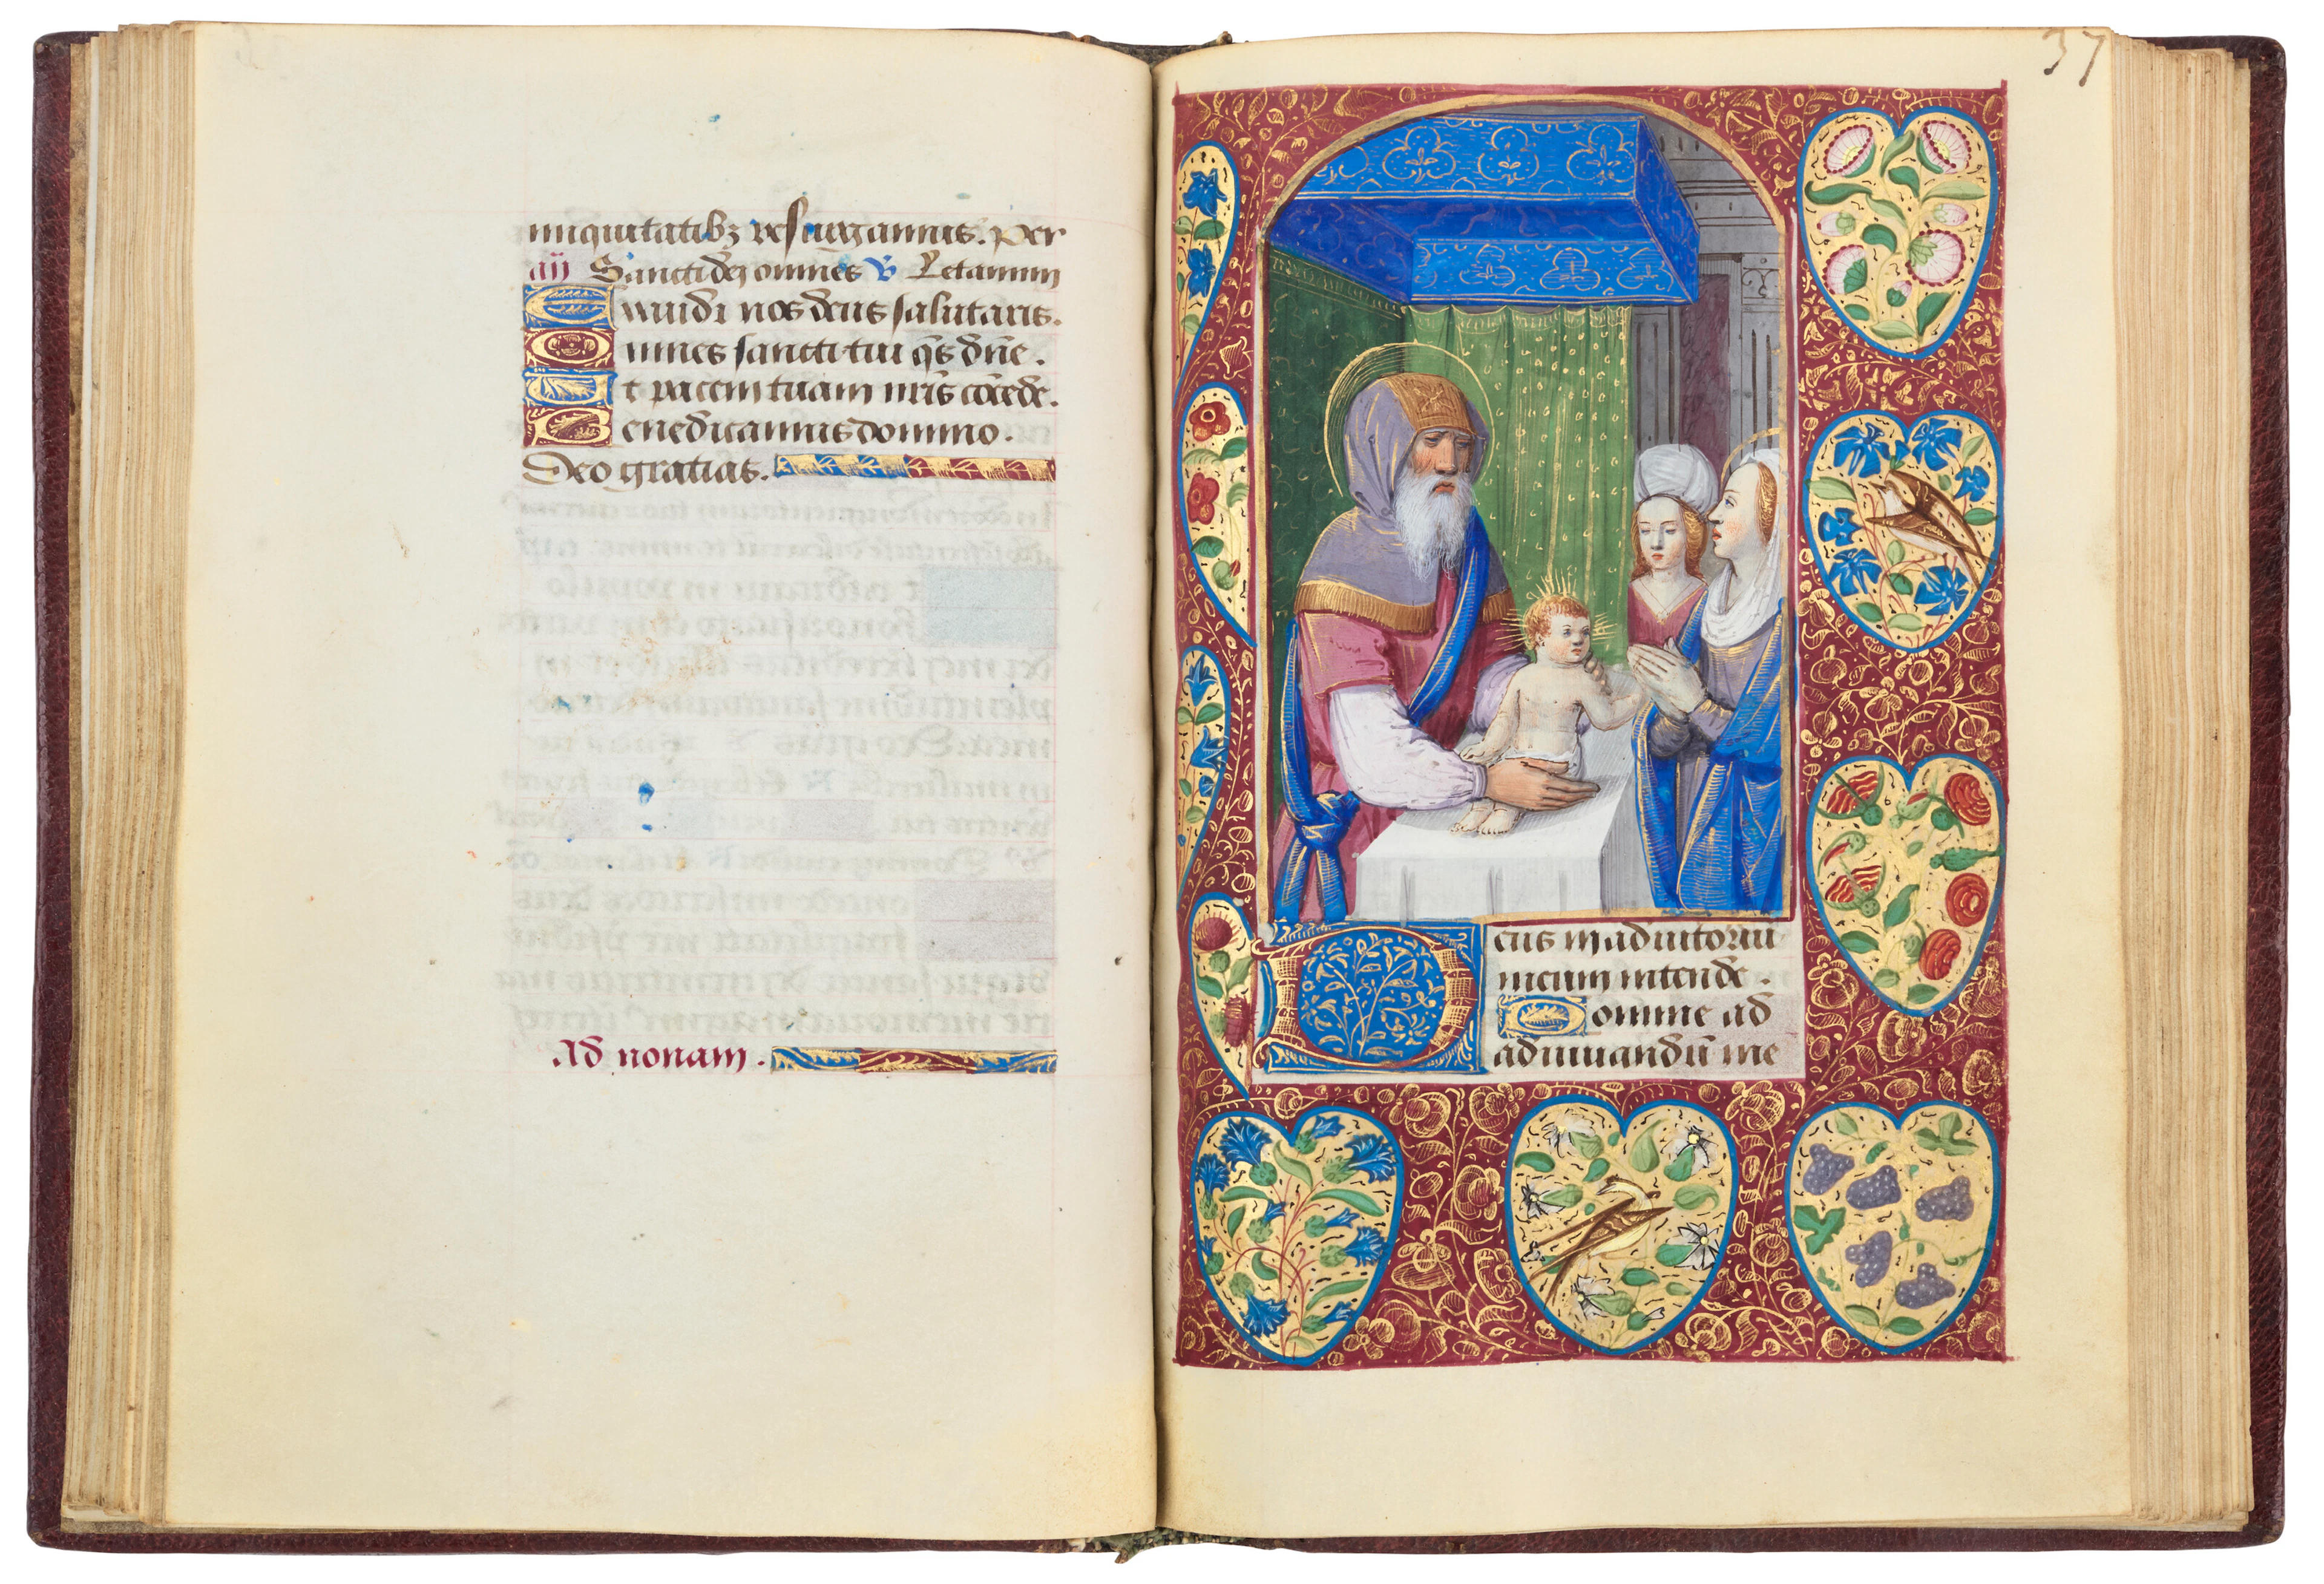 iniquitatibꝫ resurgamus. Per
añ Sancti dei omnes ℣ Letamini
Exaudi nos deus salutaris.
Omnes sancti tui q̄s dn̄e.
Et pacem tuam nr̄is cōcede.
Benedicamus domino.
Deo gratias.
Ad nonam.
37
Deus in adiutoriū
meum intende.
Domine ad
adiuuandū me